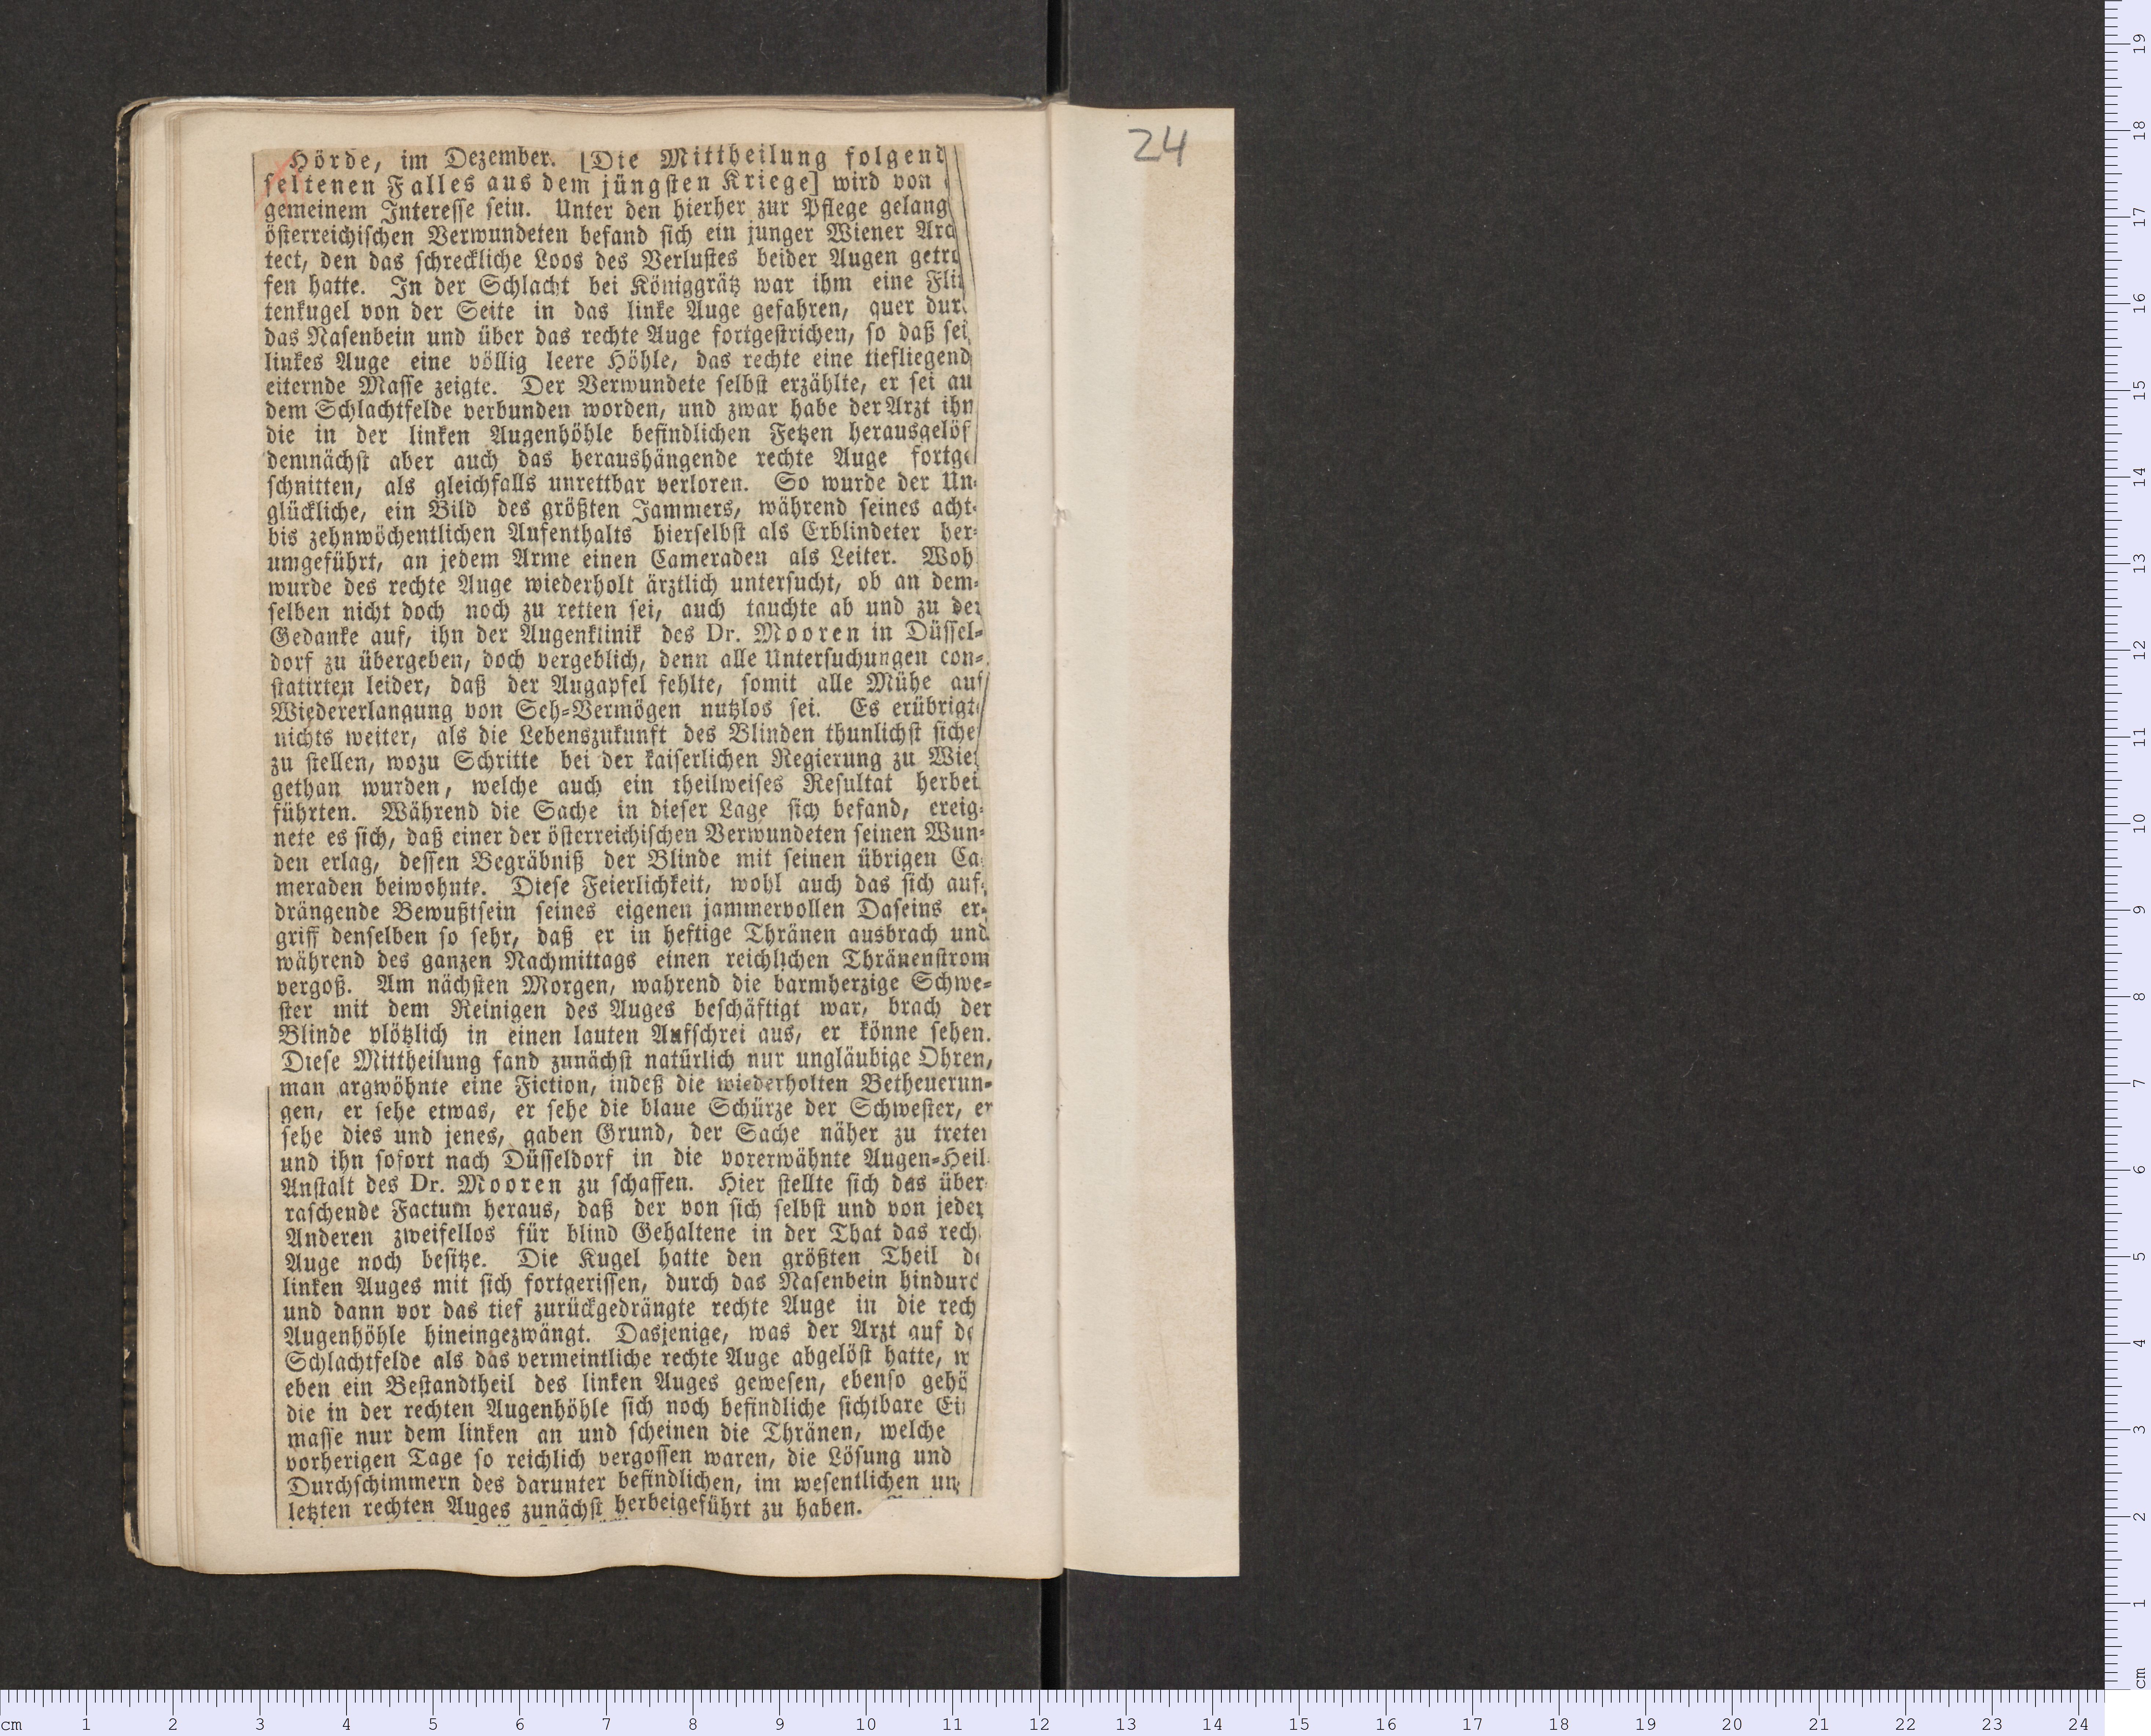 24
Hörde, im Dezember. [Die Mittheilung folgend
seltenen Falles aus dem jüngsten Kriege] wird von
gemeinem Interesse sein. Unter den hierher zur Pflege gelang
österreichischen Verwundeten befand sich ein junger Wiener Arc
tect, den das schreckliche Loos des Verlustes beider Augen getro
fen hatte. In der Schlacht bei Königgrätz war ihm eine Flin
tenkugel von der Seite in das linke Auge gefahren, quer durc
das Nasenbein und über das rechte Auge fortgestrichen, so daß sei
linkes Auge eine völlig leere Höhle, das rechte eine tiefliegend
eiternde Masse zeigte. Der Verwundete selbst erzählte, er sei au
dem Schlachtfelde verbunden worden, und zwar habe der Arzt ihn
die in der linken Augenhöhle befindlichen Fetzen herausgelös
demnächst aber auch das heraushängende rechte Auge fortge
schnitten, als gleichfalls unrettbar verloren. So wurde der Un-
glückliche, ein Bild des größten Jammers, während seines acht-
bis zehnwöchentlichen Aufenthalts hierselbst als Erblindeter her-
umgeführt, an jedem Arme einen Cameraden als Leiter. Woh
wurde des rechte Auge wiederholt ärztlich untersucht, ob an dem-
selben nicht doch noch zu retten sei, auch tauchte ab und zu der
Gedanke auf, ihn der Augenklinik des Dr. Mooren in Düssel-
dorf zu übergeben, doch vergeblich, denn alle Untersuchungen con-
statirten leider, daß der Augapfel fehlte, somit alle Mühe auf
Wiedererlangung von Seh-Vermögen nutzlos sei. Es erübrigte
nichts weiter, als die Lebenszukunft des Blinden thunlichst siche
zu stellen, wozu Schritte bei der kaiserlichen Regierung zu Wie
gethan wurden, welche auch ein theilweises Resultat herbei
führten. Während die Sache in dieser Lage sich befand, ereig-
nete es sich, daß einer der österreichischen Verwundeten seinen Wun-
den erlag, dessen Begräbniß der Blinde mit seinen übrigen Ca-
meraden beiwohnte. Diese Feierlichkeit, wohl auch das sich auf-
drängende Bewußtsein seines eigenen jammervollen Daseins er-
griff denselben so sehr, daß er in heftige Thränen ausbrach und
während des ganzen Nachmittags einen reichlichen Thränenstrom
vergoß. Am nächsten Morgen, wahrend die barmherzige Schwe-
ster mit dem Reinigen des Auges beschäftigt war, brach der
Blinde plötzlich in einen lauten Aufschrei aus, er könne sehen.
Diese Mittheilung fand zunächst natürlich nur ungläubige Ohren,
man argwöhnte eine Fiction, indeß die wiederholten Betheuerun-
gen, er sehe etwas, er sehe die blaue Schürze der Schwester, er
sehe dies und jenes, gaben Grund, der Sache näher zu treten
und ihn sofort nach Düsseldorf in die vorerwähnte Augen-Heil-
Anstalt des Dr. Mooren zu schaffen. Hier stellte sich das über-
raschende Factum heraus, daß der von sich selbst und von jeder
Anderen zweifellos für blind Gehaltene in der That das rech
Auge noch besitze. Die Kugel hatte den größten Theil de
linken Auges mit sich fortgerissen, durch das Nasenbein hindurc
und dann vor das tief zurückgedrängte rechte Auge in die rech
Augenhöhle hineingezwängt. Dasjenige, was der Arzt auf de
Schlachtfelde als das vermeintliche rechte Auge abgelöst hatte, w
eben ein Bestandtheil des linken Auges gewesen, ebenso gehö
die in der rechten Augenhöhle sich noch befindliche sichtbare Ei
masse nur dem linken an und scheinen die Thränen, welche
vorherigen Tage so reichlich vergossen waren, die Lösung und
Durchschimmern des darunter befindlichen, im wesentlichen un
letzten rechten Auges zunächst herbeigeführt zu haben.